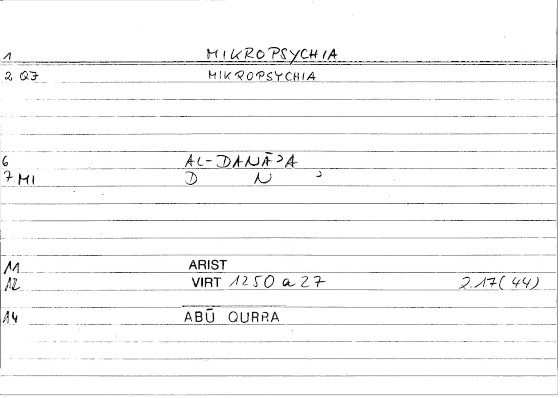 1 MIKROPSYCHIA
2 Q7 MIKROPSYCHIA
6 AL-DANĀʾA
7 MI D N ʾ
11 ARIST
12 VIRT 1250 a 27 2.17(44)
14 ABŪ QURRA